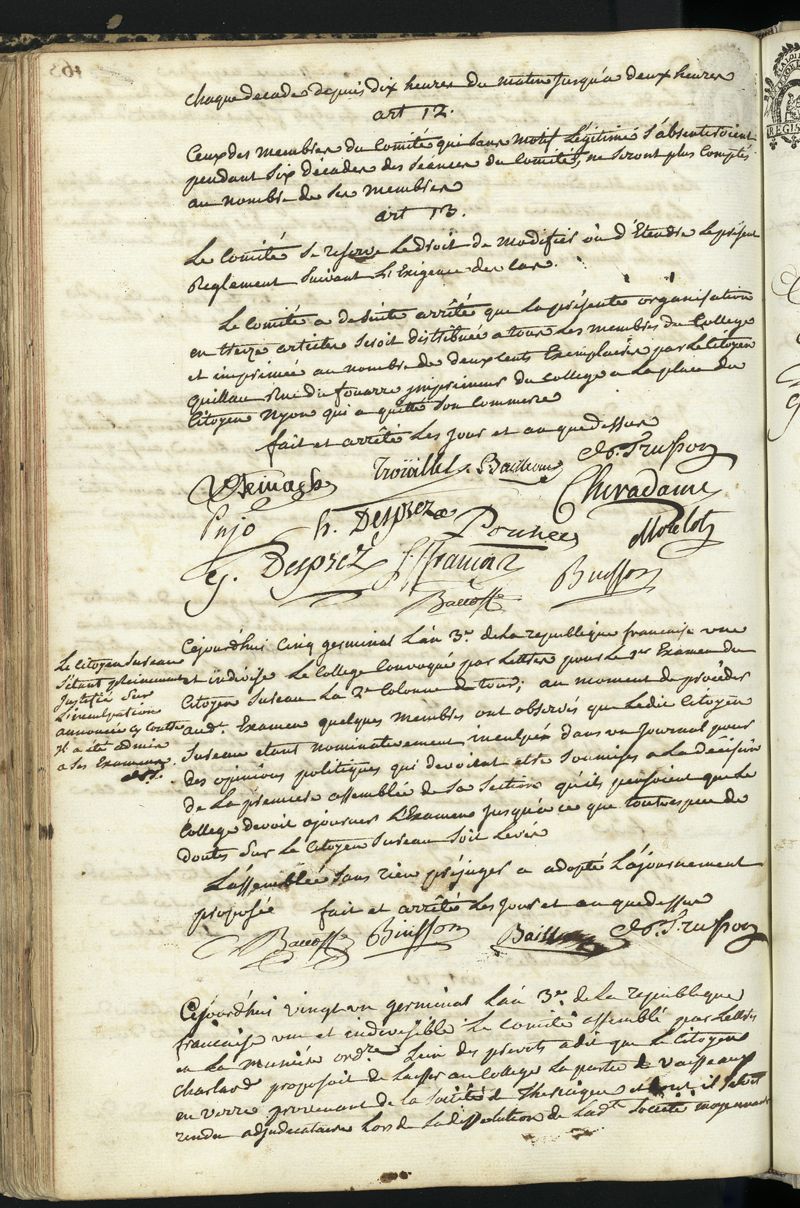 chaque decade depuis dix heures du matin jusqu'a deux heures
art 12.
Ceux des membres du Comité qui sans motif Légitime s'absenteroient
pendant six décades des séances du Comité, ne seront plus comptés
au nombre de ses membres
art 13.
Le Comité se reserve Le droit de modifier ou d'Etendre Le présent
Reglement suivant L'Exigence des cas.
Le Comité a de suite arrêté que La présente organisation
en treize articles seroit distribuée a tous Les membres du College
et imprimée au nombre de deux cents Exemplaires par Le Citoyen
quillau rue du fouarre imprimeur du College a La place du
Citoyen Nyon qui a quitté son Commerce
fait et arrêté Les jour et an que dessus
Demachy Trouillet Bailleau Ch. Trusson
Cheradame
Pujo h. Desprez Morelot
G. Desprez Buisson
Bacoffe
Cejourd'hui Cinq germinal L'an 3e. de La republique francaise une
et indivise Le College Convoqué par Lettres pour Le 1er Examen du
Citoyen Sureau La 2e. Colonne de tour; au moment de procéder
aud. Examen quelques membres ont observés que Ledit Citoyen
Sureau etant nominativement inculpé dans un Journal pour
des opinions politiques qui devoient etre soumises a La décision
de La premiere assemblée de sa section qu'ils pensoient que Le
College devoit ajourner L'Examen jusqu'a ce que toute espece de
doutes sur Le Citoyen Sureau soit Levée
Le Citoyen Sureau
s'étant pleinement
justifié sur
L'inculpation
annoncée cy contre
il a été admis
a ses Examens.
L'assemblée sans rien préjuger a adopté L'ajournement
proposée fait et arrêté Les jour et an que dessus
Bacoffe Buisson Ch. Trusson
Cejourd'hui vingt un germinal L'an 3e. de La republique
francaise une et indivisible Le Comité assemblé par Lettres
en La maniere ordre. L'un des prevots a dit que Le Citoyen
Charlard proposait de Laisser au College La partie de vaisseaux
en verre provenant de La Société de Theriaque et dont il s'etoit
rendu adjudicataire Lors de La dissolution de Ladte Société moyennant